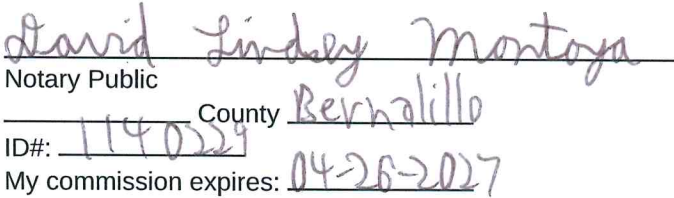 David Lindsey Montoya
Notary Public
County Bernalillo
ID#: 1140229
My commission expires: 04-26-2027